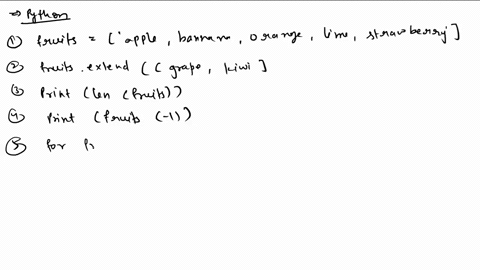 ⇒ Python
① fruits = ['apple, bannana, orange, lime, strawberry']
② fruits.extend (( grape, kiwi ]
③ Print (len (fruits))
④ Print (fruits (-1))
⑤ for fr